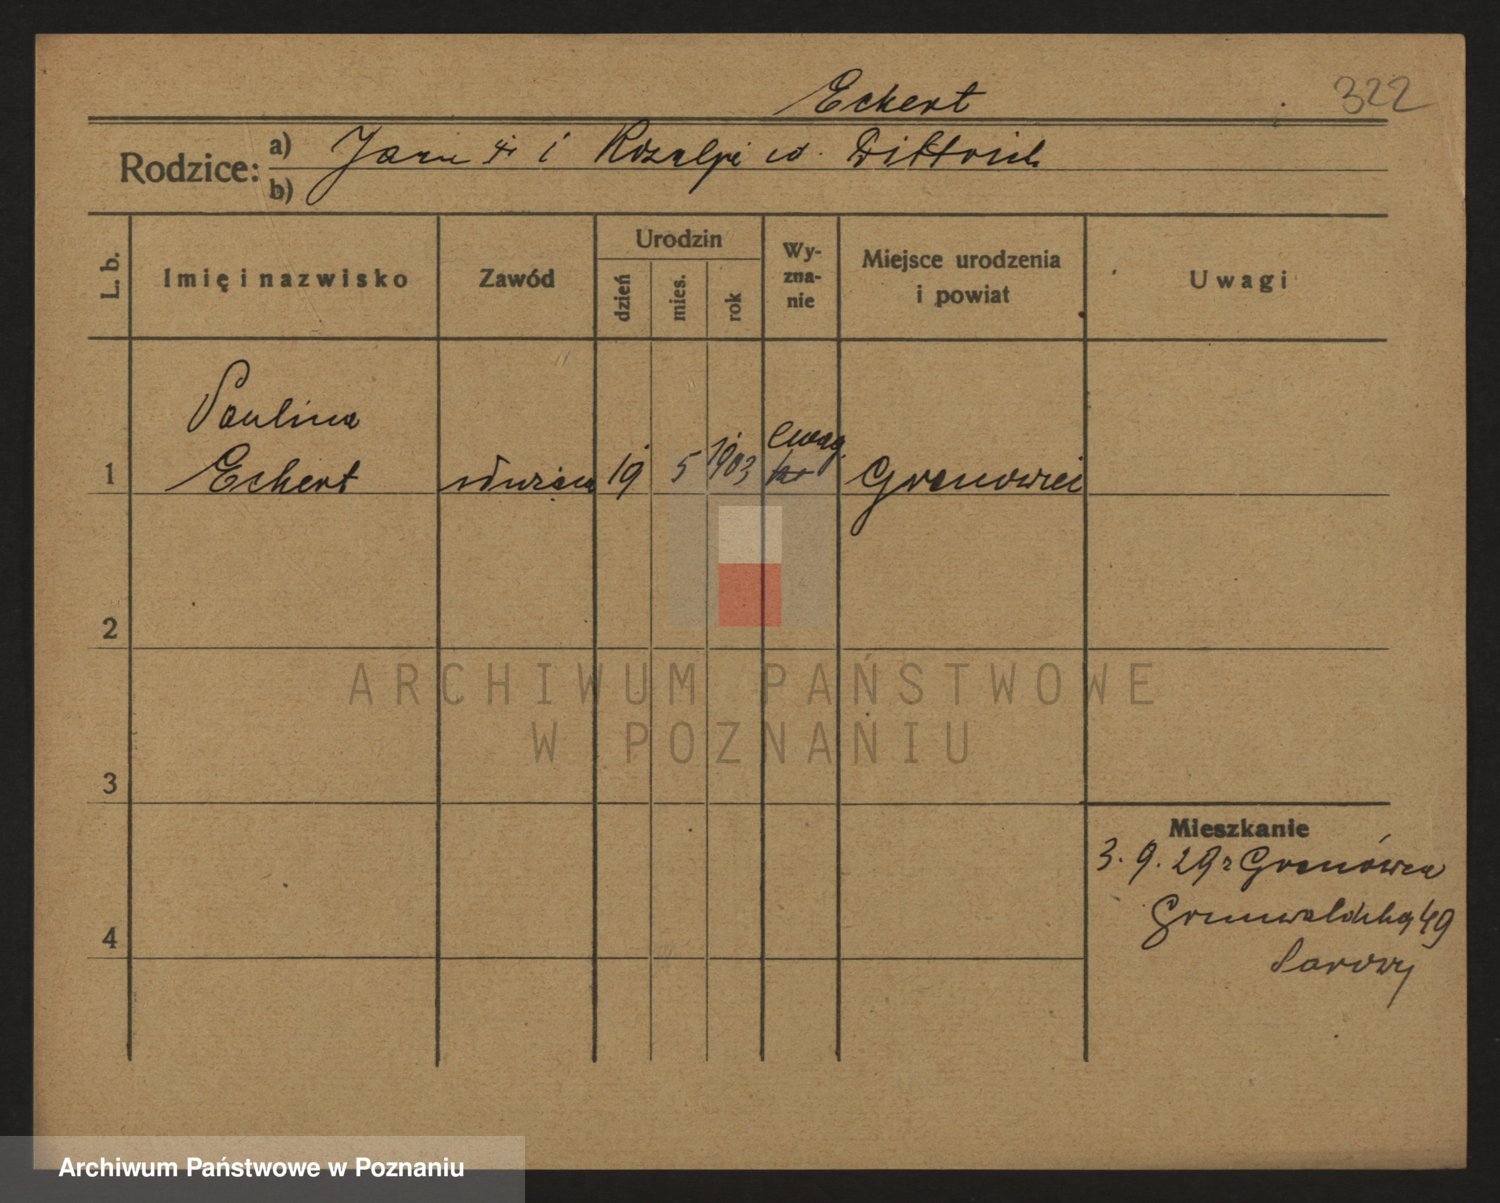 Eckert 322
Rodzice: a) Jan i Rozalji d. Dittrich
b)
L. b.
Imię i nazwisko
Zawód
Urodzin
dzień
mies.
rok
Wy-
zna-
nie
Miejsce urodzenia
i powiat
Uwagi
Paulina
1 Eckert 19 5 1903 ewag. Gronowiei
2
3
4
Mieszkanie
3. 9. 29 r Gronówca
Grunwaldzka 49
ARCHIWUM PAŃSTWOWE
W POZNANIU
Archiwum Państwowe w Poznaniu